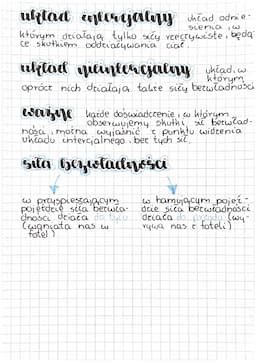 układ inercjalny układ odnie-
sienia, w
którym działają tylko siły rzeczywiste, będą
ce skutkiem oddziaływania ciał.
układ nieinercjalny układ, w
którym
oprócz nich działają także siły bezwładności
ważne każde doświadczenie, w którym
obserwujemy skutki sił bezwład-
ności, można wyjaśnić z punktu widzenia
układu inercjalnego, bez tych sił.
siła bezwładności
w przyspieszającym
pojeździe siła bezwła-
dności działa do tyłu
(wgniata nas w
fotel)
w hamującym pojeź-
dzie siła bezwładności
działa do przodu (wy-
rywa nas z foteli)